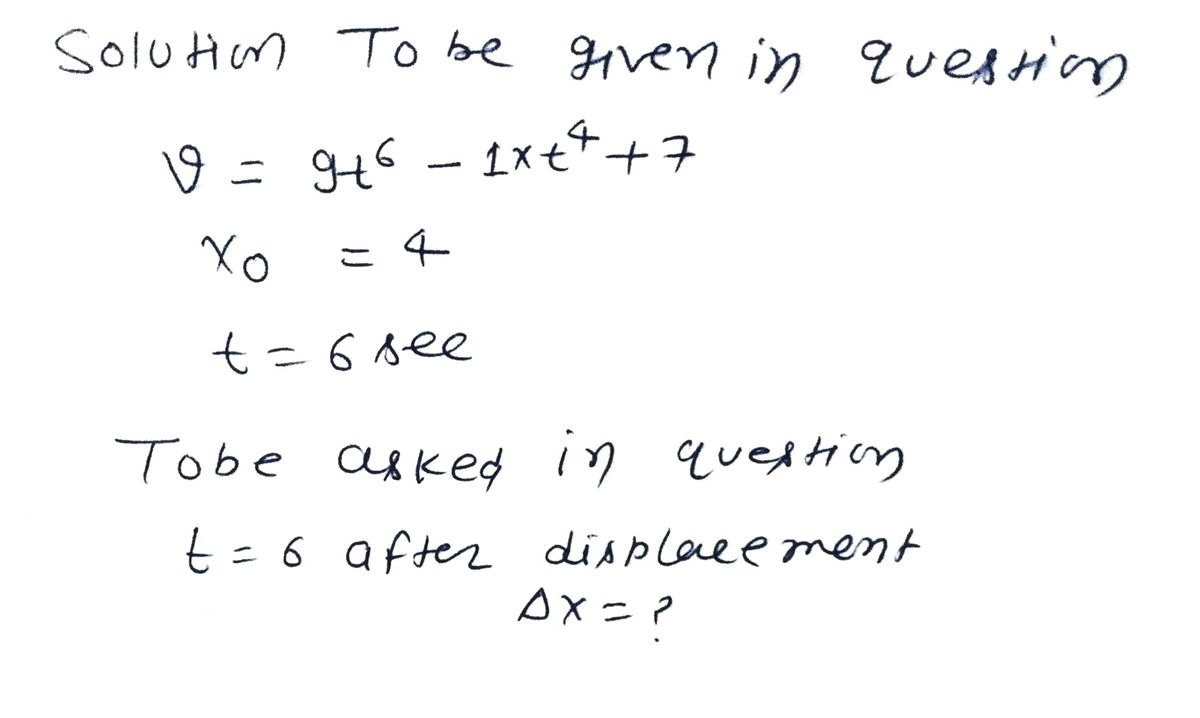 Solution To be given in question
v = 9t⁶ - 1×t⁴ + 7
x₀ = 4
t = 6 sec
Tobe asked in question
t = 6 after displacement
Δx = ?